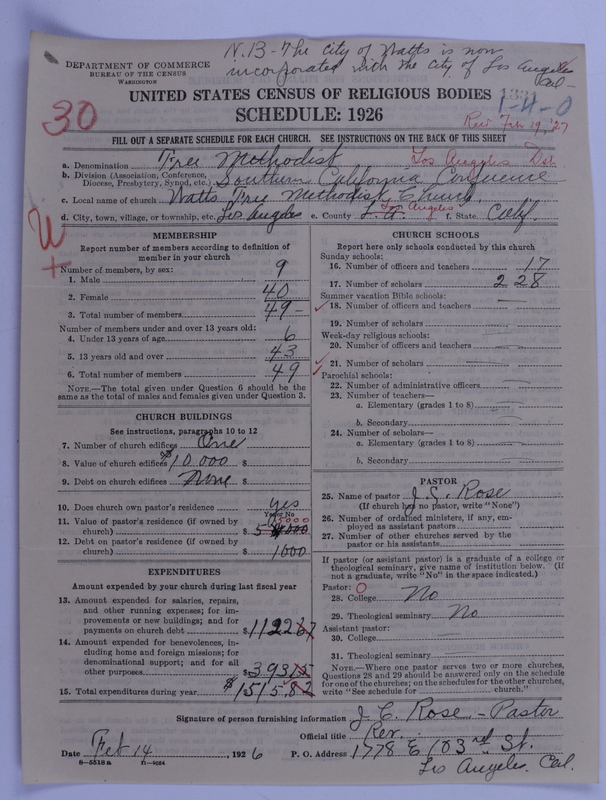 N.B - The City of Watts is now
incorporated with the City of Los Angeles
Cal -
DEPARTMENT OF COMMERCE
BUREAU OF THE CENSUS
WASHINGTON
UNITED STATES CENSUS OF RELIGIOUS BODIES
1-4-0
SCHEDULE: 1926
30
Rec'd Feb 19, '27
FILL OUT A SEPARATE SCHEDULE FOR EACH CHURCH. SEE INSTRUCTIONS ON THE BACK OF THIS SHEET
a. Denomination Free Methodist Los Angeles Dst.
b. Division (Association, Conference, Diocese, Presbytery, Synod, etc.) Southern California Conference
c. Local name of church Watts Free Methodist Church.
Los Angeles
d. City, town, village, or township, etc. Los Angeles e. County L.A. f. State Calif.
MEMBERSHIP
Report number of members according to definition of
member in your church
Number of members, by sex:
1. Male 9
2. Female 40
3. Total number of members 49
Number of members under and over 13 years old:
4. Under 13 years of age 6
5. 13 years old and over 43
6. Total number of members 49
NOTE.—The total given under Question 6 should be the
same as the total of males and females given under Question 3.
CHURCH BUILDINGS
See instructions, paragraphs 10 to 12
7. Number of church edifices One
8. Value of church edifices $10 000 $
9. Debt on church edifices None $
10. Does church own pastor's residence yes
Yes or No
11. Value of pastor's residence (if owned by
church) $
12. Debt on pastor's residence (if owned by
church) $ 1000
EXPENDITURES
Amount expended by your church during last fiscal year
13. Amount expended for salaries, repairs,
and other running expenses; for im-
provements or new buildings; and for
payments on church debt $ 1122 67
14. Amount expended for benevolences, in-
cluding home and foreign missions; for
denominational support; and for all
other purposes $ 393 15
15. Total expenditures during year $ 1515.82
CHURCH SCHOOLS
Report here only schools conducted by this church
Sunday schools:
16. Number of officers and teachers 17
17. Number of scholars 228
Summer vacation Bible schools:
18. Number of officers and teachers
19. Number of scholars
Week-day religious schools:
20. Number of officers and teachers
21. Number of scholars
Parochial schools:
22. Number of administrative officers
23. Number of teachers—
a. Elementary (grades 1 to 8)
b. Secondary
24. Number of scholars—
a. Elementary (grades 1 to 8)
b. Secondary
PASTOR
25. Name of pastor J. C. Rose
(If church has no pastor, write "None")
26. Number of ordained ministers, if any, em-
ployed as assistant pastors
27. Number of other churches served by the
pastor or his assistants
If pastor (or assistant pastor) is a graduate of a college or
theological seminary, give name of institution below. (If
not a graduate, write "No" in the space indicated.)
Pastor: O
28. College No
29. Theological seminary No
Assistant pastor:
30. College
31. Theological seminary
NOTE.—Where one pastor serves two or more churches,
Questions 28 and 29 should be answered only on the schedule
for one of the churches; on the schedules for the other churches,
write "See schedule for church."
Signature of person furnishing information J. C. Rose - Pastor
Official title Rev.
Date Feb 14, 1926 P. O. Address 1778 E 103rd St.
8-5518a 11-9024 Los Angeles. Cal.